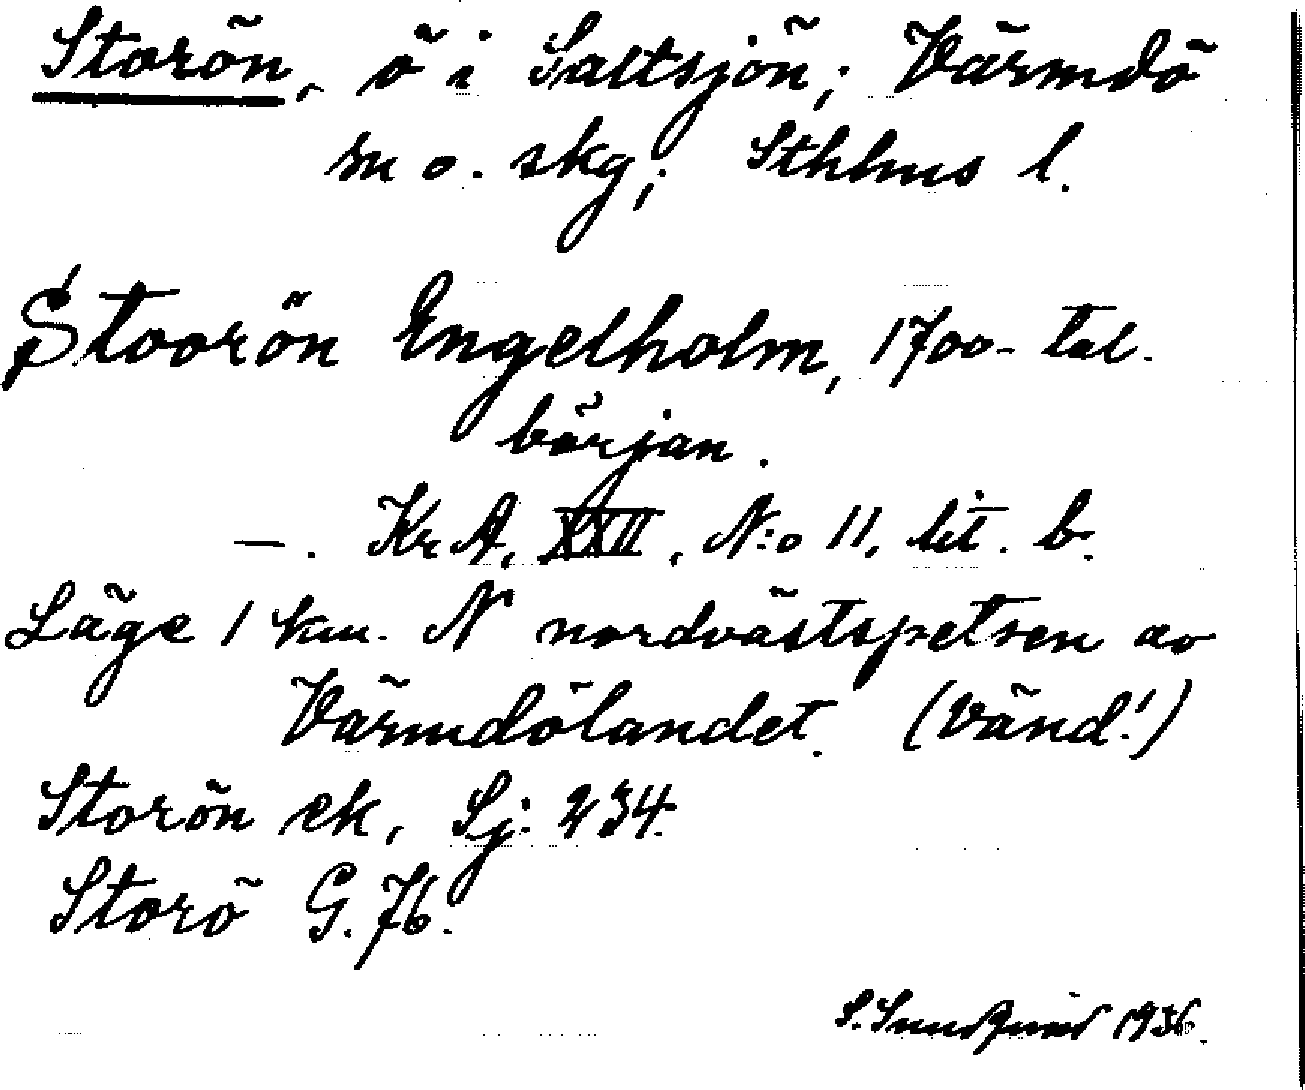 Storön, ö i Saltsjön; Värmdö
sn o. skg; Sthlms l.
Stoorön Engelholm, 1700-tal.
början.
—. KrA, XXII, N:o 11, lit. b.
Läge 1 km. N nordvästspetsen av
Värmdölandet. (Vänd!)
Storön ek, Sj. 234.
Storö G. 76.
S. 1936.